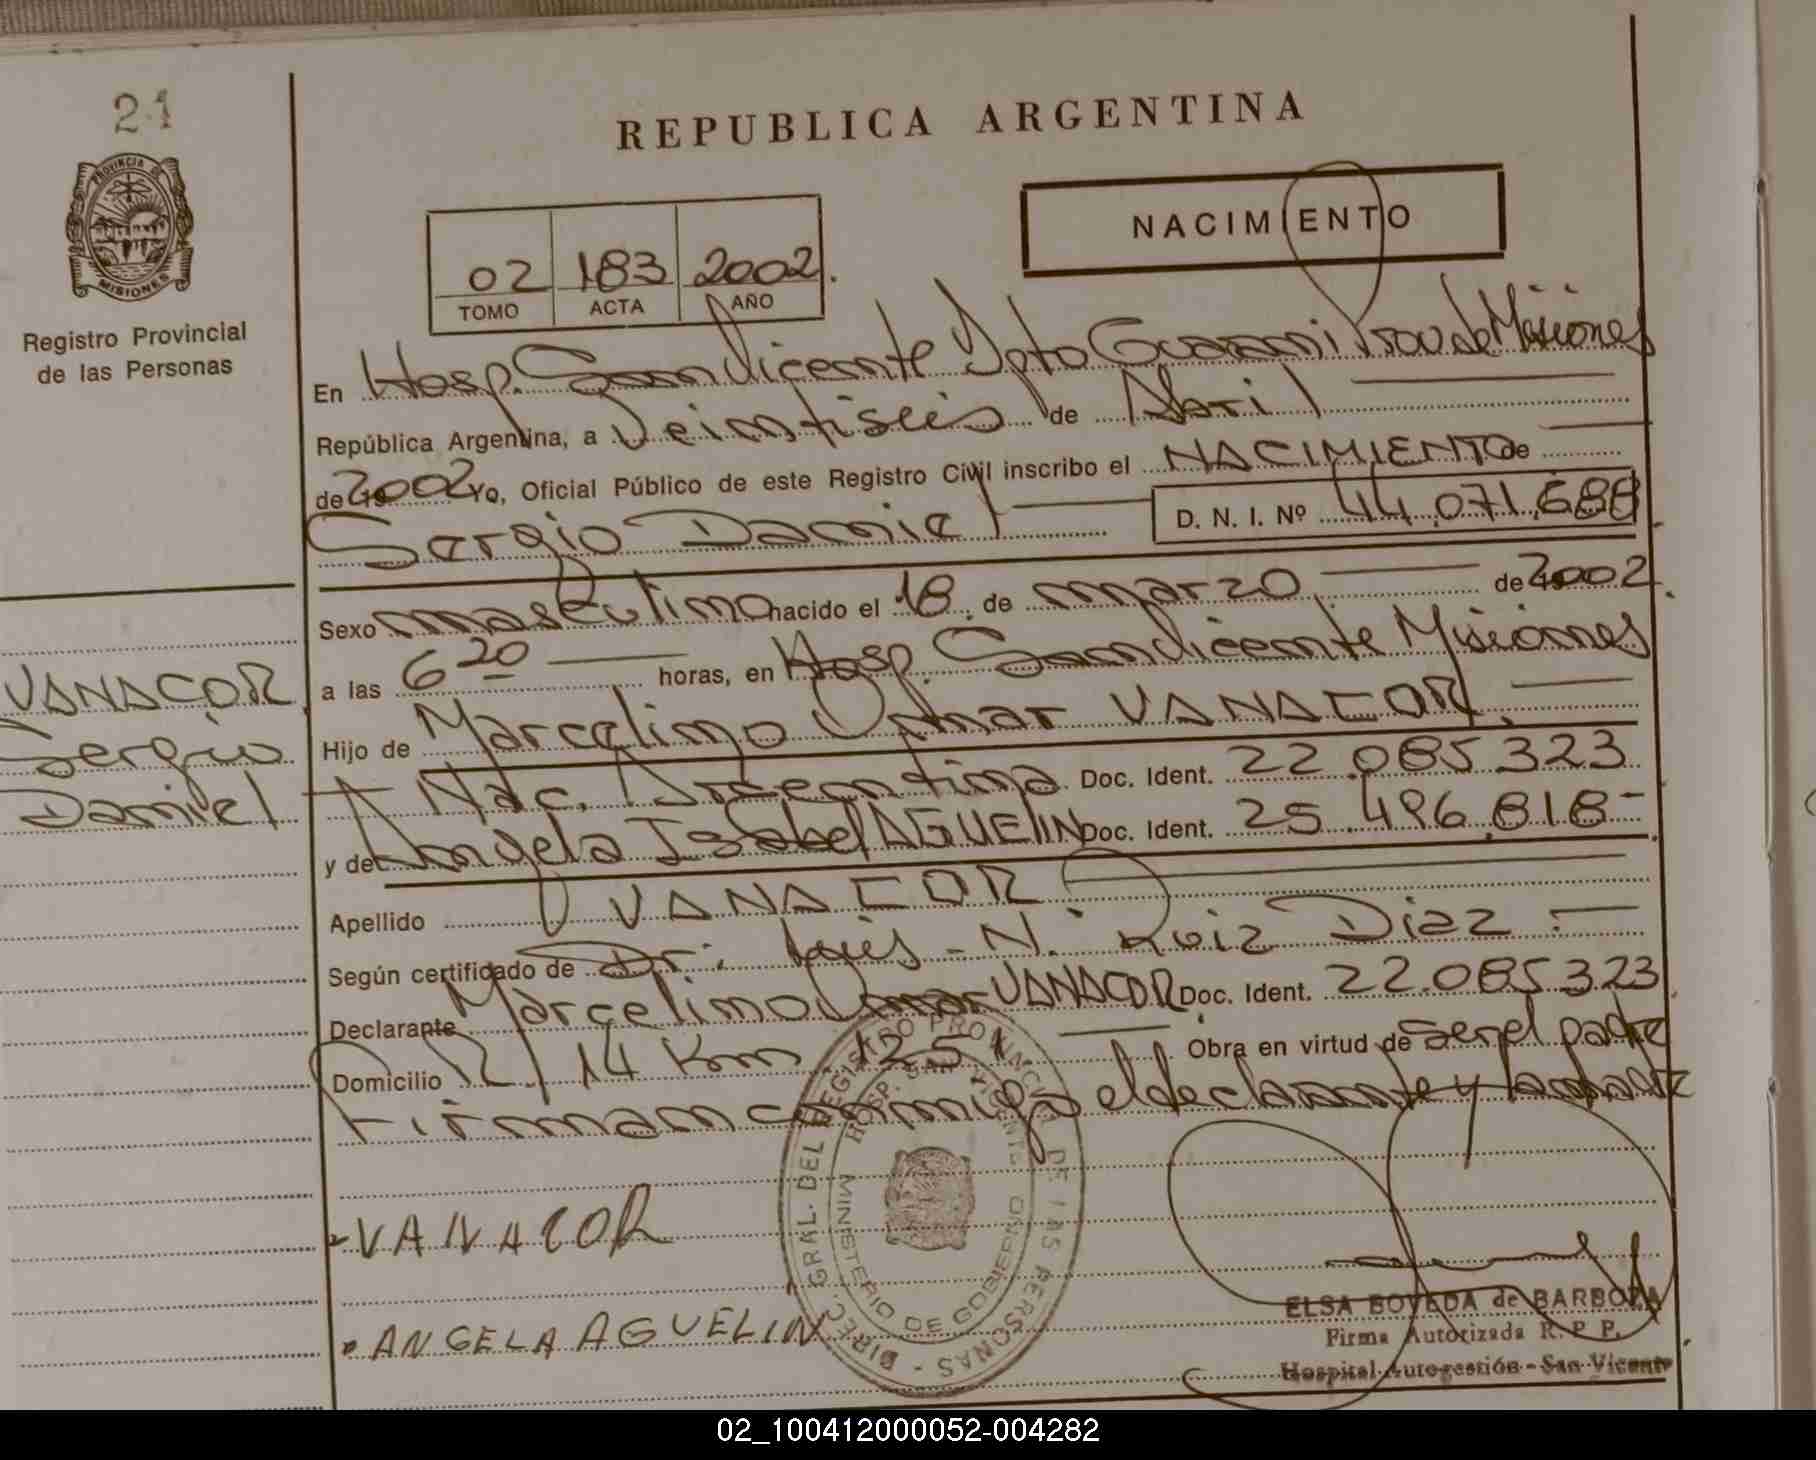 21
PROVINCIA DE
MISIONES
Registro Provincial
de las Personas
VANACOR
Sergio
Daniel
REPUBLICA ARGENTINA
02 183 2002.
TOMO ACTA AÑO
NACIMIENTO
En Hosp. San Vicente Dpto Guarani Prov de Misiones
República Argentina, a Veintiseis de Abril
de 2002 Yo, Oficial Público de este Registro Civil inscribo el NACIMIENTO de
Sergio Daniel D. N. I. Nº 44.071.688
Sexo masculino nacido el 18 de marzo de 2002.
a las 6 20 horas, en Hosp. San Vicente Misiones
Hijo de Marcelino Omar VANACOR.
Nac. Argentina Doc. Ident. 22.085.323
y de Angela Isabel AGUELIN Doc. Ident. 25.496.818-
Apellido VANACOR
Según certificado de Dr. Luis - N. Ruiz Diaz
Declarante Marcelino Omar VANACOR Doc. Ident. 22.085.323
Domicilio R/ 14 Km 1251 Obra en virtud de ser el padre
Firman conmigo el declarante y la madre
VANACOR
ANGELA AGUELIN
DIREC. GRAL. DEL REGISTRO PROVINCIAL DE LAS PERSONAS -
HOSP. SAN VICENTE
MINISTERIO DE GOBIERNO
ELSA BOVEDA de BARBOZA
Firma Autorizada R. P. P.
Hospital Autogestión - San Vicente
02_100412000052-004282